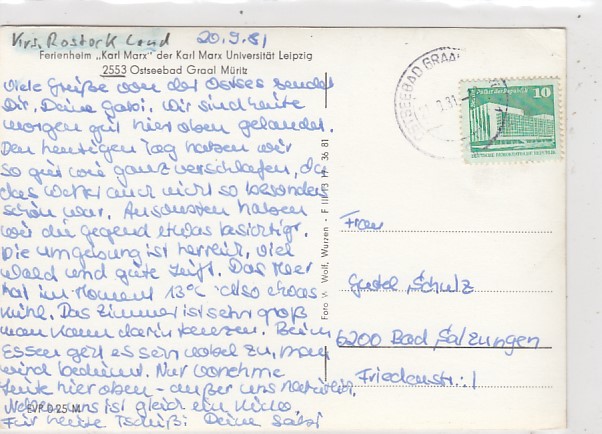 Krs. Rostock Land 20.9.81
Ferienheim „Karl Marx" der Karl Marx Universität Leipzig
2553 Ostseebad Graal Müritz
Viele Grüße von der Ostsee sendet
Dir, Deine Gabi. Wir sind heute
morgen gut hier oben gelandet.
Den heutigen Tag haben wir
so gut wie ganz verschlafen, da
das Wetter auch nicht so besonders
schön war. Ansonsten haben
wir die Gegend etwas besichtigt.
Die Umgebung ist herrlich, viel
Wald und gute Luft. Das Meer
hat im Moment 13°C also etwas
kühl. Das Zimmer ist sehr groß
man kann darin tanzen. Beim
Essen geht es sehr nobel zu, man
wird bedient. Nur vornehme
Leute hier oben - außer uns natürlich.
Neben uns ist gleich ein Kino.
Für heute Tschüß! Deine Gabi
EVP 0,25 M
Foto W. Wolf, Wurzen - F III 13 36 81
OSTSEEBAD GRAAL
10
DEUTSCHE DEMOKRATISCHE REPUBLIK
Frau
Gustel Schulz
6200 Bad Salzungen
Friedenstr. 1